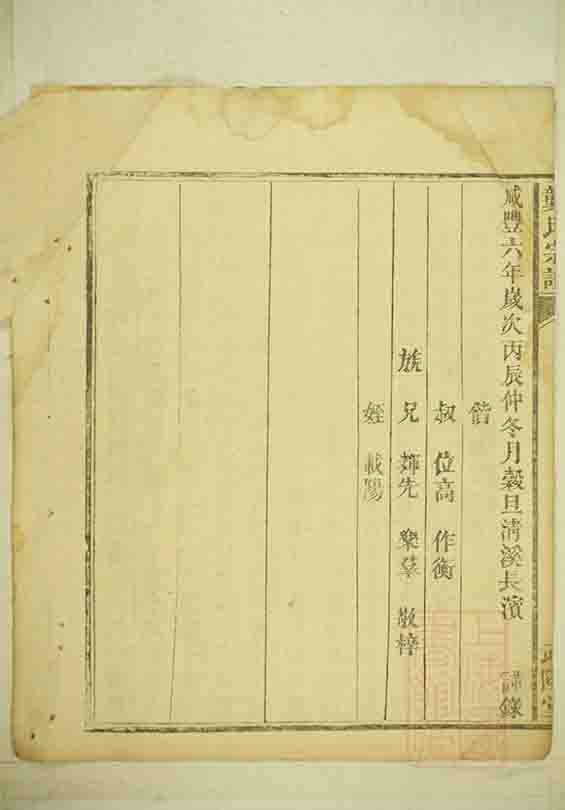 氏宗譜
咸豐六年歲次丙辰仲冬月穀旦清溪長濱 謹錄
偕
叔 位高 作衡
族兄 先 樂 敬梓
姪 載陽